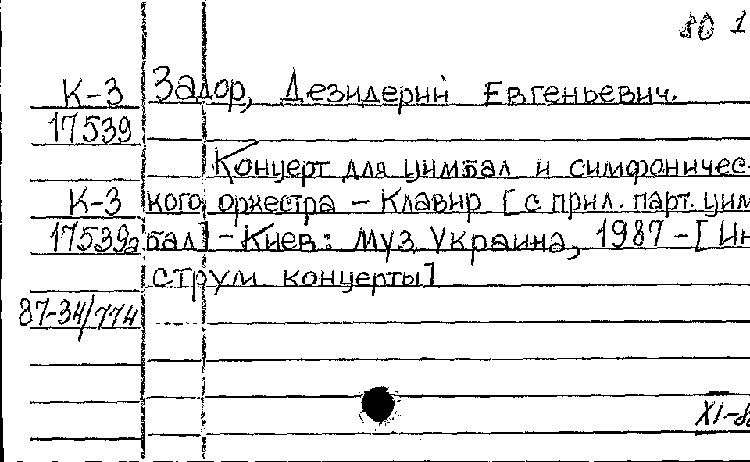 80 1
К-3 Задор, Дезидерий Евгеньевич.
17539
Концерт для цимбал и симфоничес-
К-3 кого оркестра - Клавир [с прил. парт. цим
17539а бал] - Киев: Муз Украина, 1987 - [Ин
струм. концерты]
87-34/774
XI-8